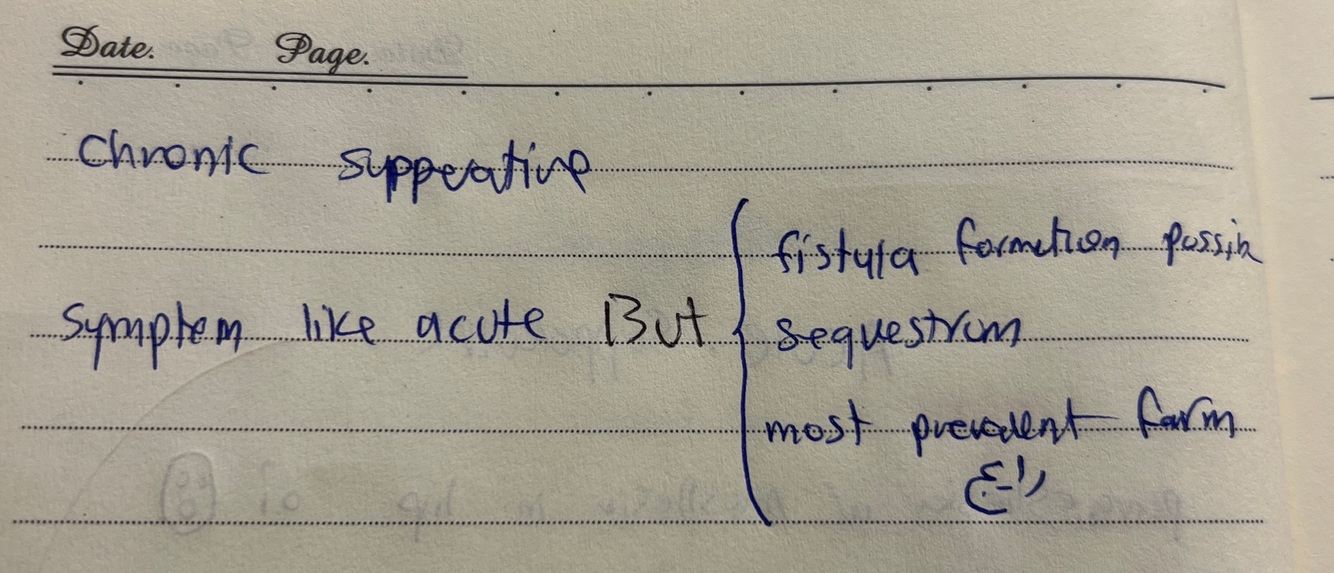 Date. Page.
Chronic supperative
fistula formation possib
Symptem like acute But
sequestrum
most prevalent form
رایج